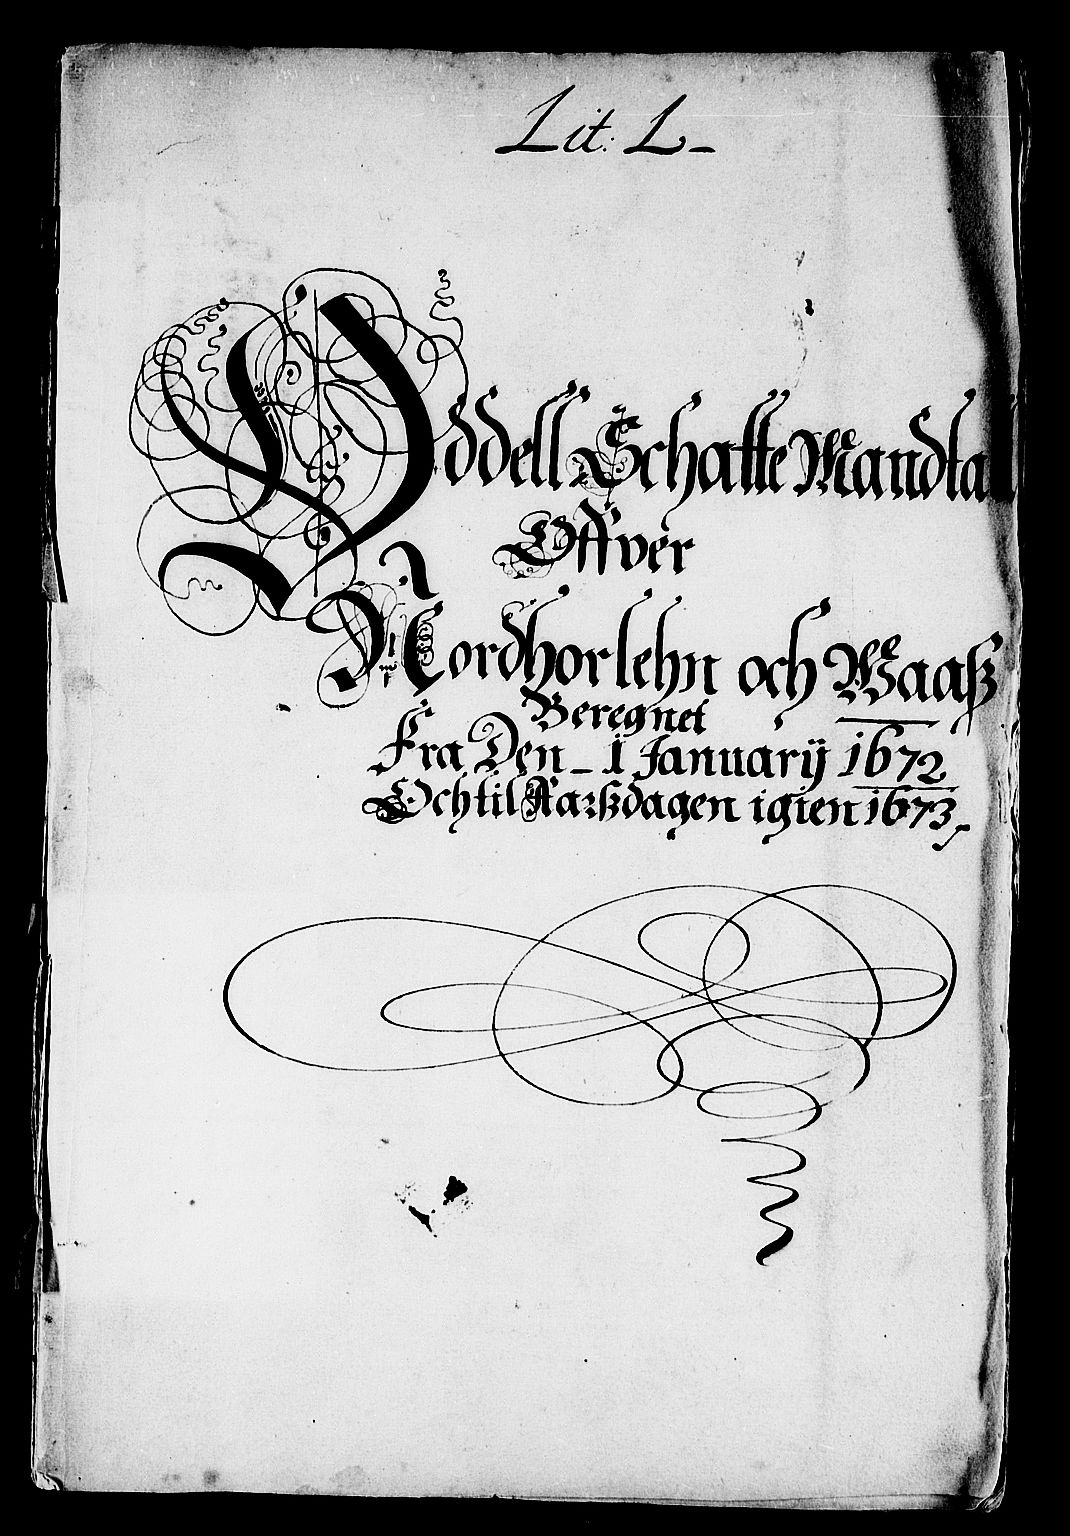 Lit: L_
Oddell Schatte Mandtal
Offver
Nordhorlehn och Waaß
Beregnet
Fra Den _ 1 January 1672
Och til Aarßdagen igien 1673